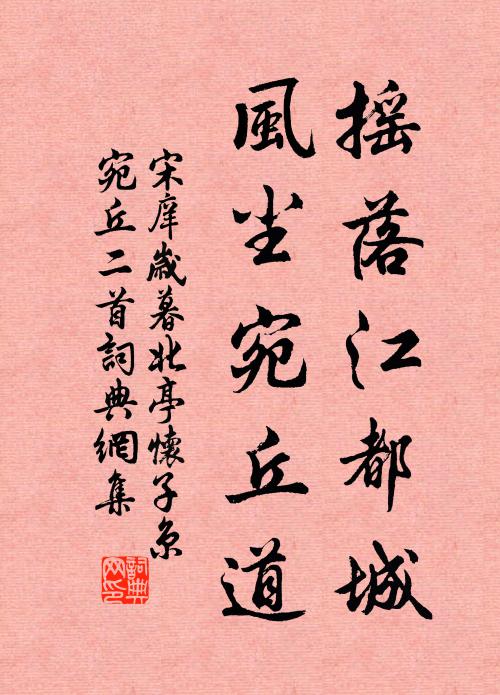 摇落江都城
風尘宛丘道
宋庠歲暮北亭懷子京
宛丘二首詞典網集
詞典
网印